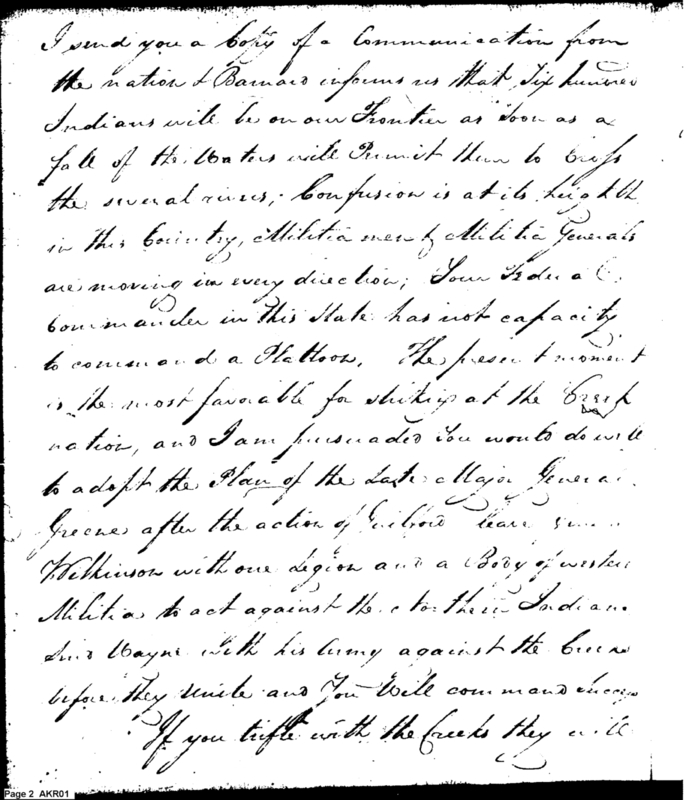 I send you a Copy of a Communication from
the nation & Barnard informs us that Six hundred
Indians will be on our Frontier as soon as a
fall of the Waters will Permit them to Cross
the several rivers; Confusion is at its heighth
in this Country, Militia men & Militia Generals
are moving in every direction; Your Federal
Commander in this State has not capacity
to command a Plattoon. The present moment
is the most favorable for striking at the Creek
nation, and I am persuaded You would do well
to adopt the Plan of the Late Major General
Greene after the action of Guilford leave
Wilkinson with one Legion and a Body of western
Militia to act against the Northern Indians
Send Wayne with his Army against the Creeks
before they Unite and You Will command success
If you trifle with the Creeks they will
Page 2 AKR01